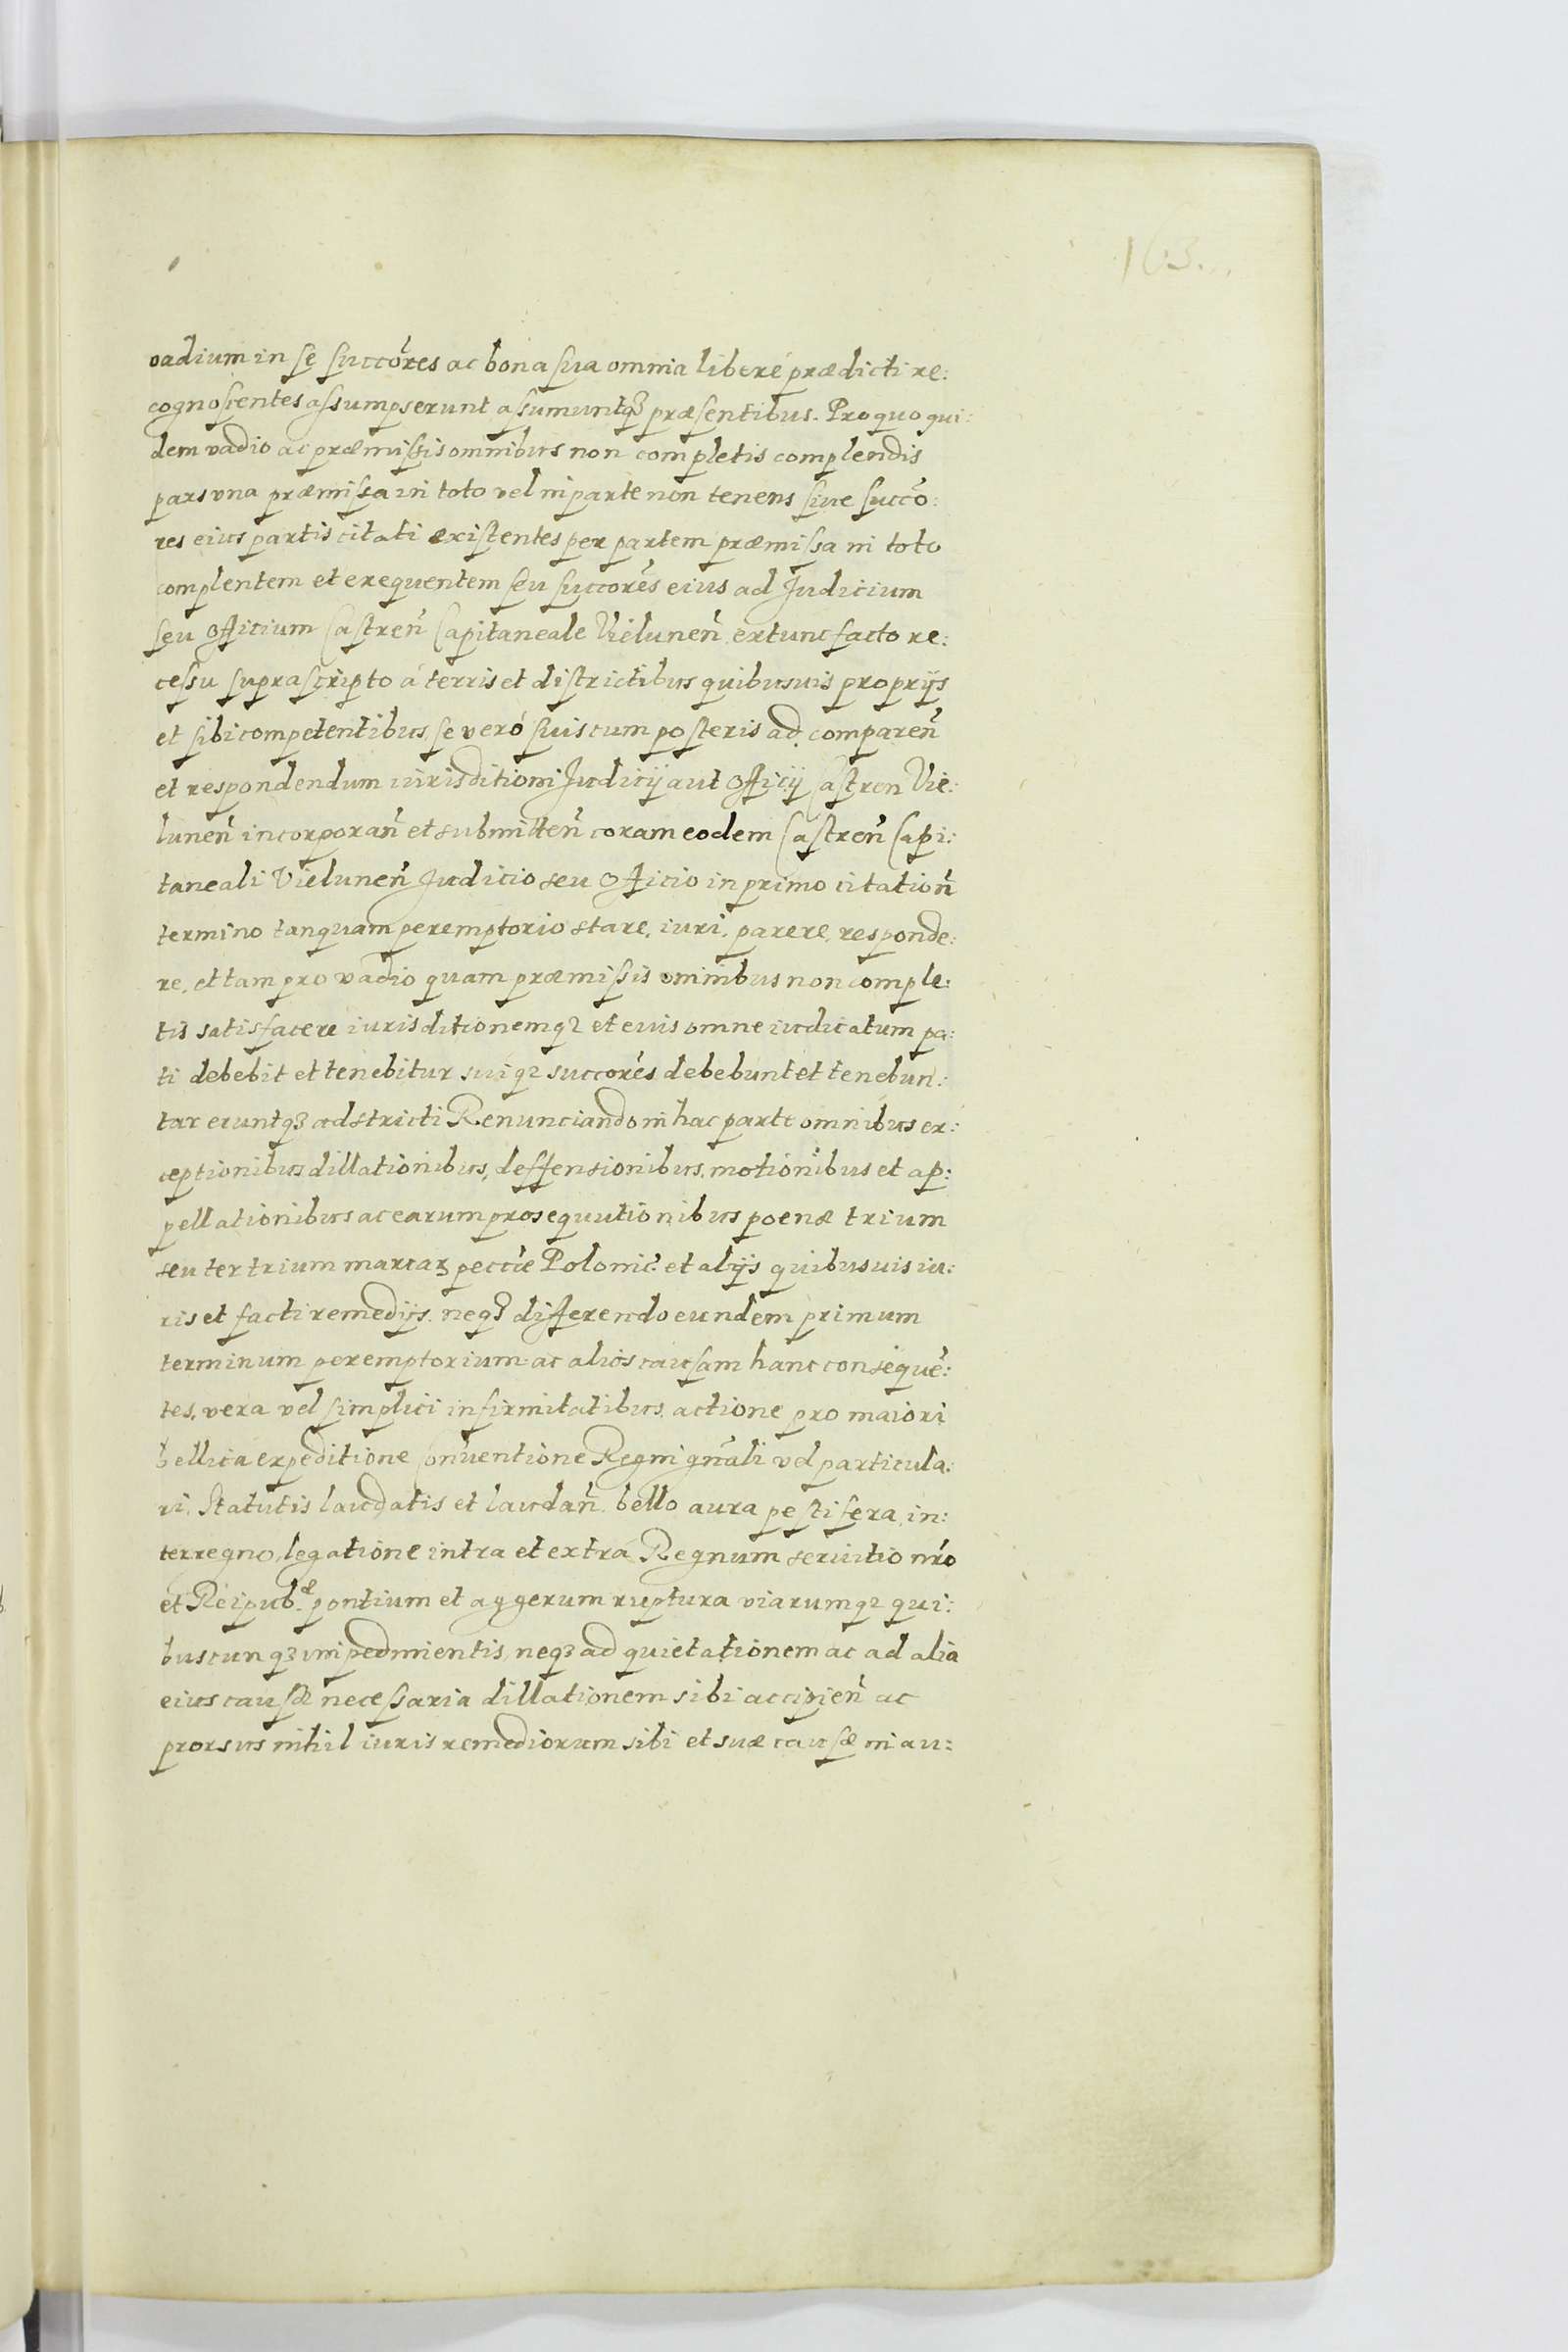 163
vadium in se succōres ac bona sua omnia liberé prædicti re:
cognoscentes assumpserunt assumuntqȝ præsentibus. Pro quo qui:
dem vadio ac præmissis omnibus non completis complendis
pars vna præmissa in toto vel in parte non tenens siue succō:
res eius partis citati existentes per partem præmissa in toto
complentem et exequentem seu succorēs eius ad Judicium
seu officium Castreñ Capitaneale Vieluneñ extunc facto re:
cessu suprascripto á terris et districtibus quibusuis proprijs
et sibi competentibus se veró suis cum posteris ad compareñ
et respondendum iurisditioni Judicij aut officij Castren Vie:
luneñ incorporañ et submitteñ coram eodem Castreñ Capi:
taneali Vieluneñ Judicio seu officio in primo citationñ
termino tanquam peremptorio stare, iuri, parere, responde:
re, et tam pro vadio quam præmissis omnibus non comple:
tis satisfacere iurisditionemqȝ et euis omne iudicatum pa:
ti debebit et tenebitur suiqȝ succorēs debebunt et tenebun:
tur eruntqȝ adstricti Renunciando in hac parte omnibus ex:
ceptionibus dillationibus, deffensionibus, motionibus et ap:
pellationibus ac earum prosequutionibus poenæ trium
seu ter trium marcaȝ peccūe Polonic̃ et alijs quibusuis iu:
ris et facti remedijs neqȝ differendo eundem primum
terminum peremptorium ac alios causam hanc consequē:
tes, vera vel simplici infirmitatibus, actione pro maiori
bellica expeditione Conuentione Regni gnāli vel particula:
ri, Statutis laudatis et laudañ bello aura pestifera, in:
terregno, legatione intra et extrá Regnum seruitio nr̃o
et Reipub.æ pontium et aggerum ruptura viarumqȝ qui:
buscunqȝ impedimentis, neqȝ ad quietationem ac ad alia
eius causæ necessaria dillationem sibi accipieñ ac
prorsus nihil iuris remediorum sibi et suæ causæ in au: